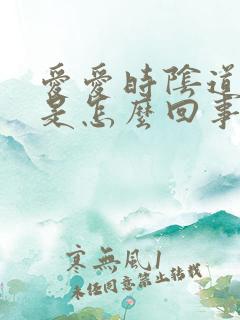 愛愛時陰道
是怎麼回事
寒無風1
未经同意禁止转载